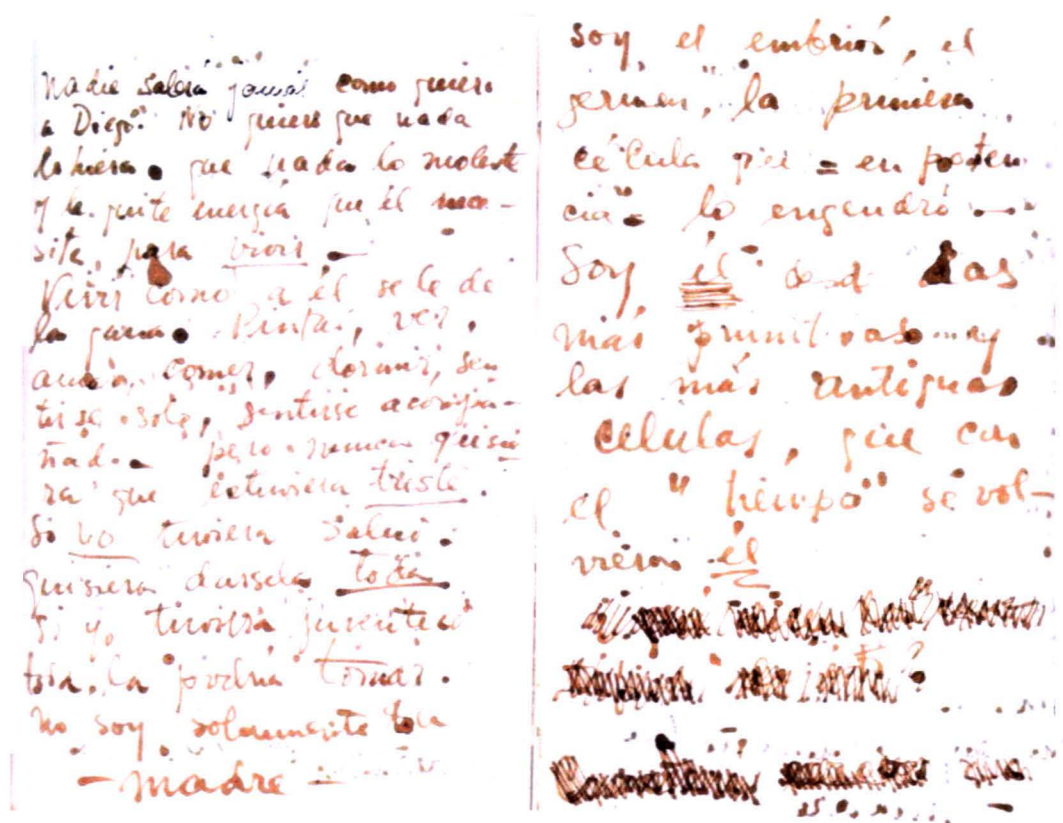 Nadie sabrá jamás como quiero
a Diego. No quiero que nada
lo hiera. que nada lo moleste
y le quite energía que él nece-
sita para vivir -
Vivir como a él se le dé
la gana. Pintar, ver,
amar, comer, dormir, sen
tirse solo, sentirse acompa-
ñado - pero nunca quisie
ra que estuviera triste.
Si yo tuviera salud
quisiera dársela toda
Si yo tuviera juventud
toda la podría tomar.
No soy solamente tu
- madre -
soy el embrión, el
germen, la primera
célula que = en poten
cia = lo engendró -
Soy él desde las
más primitivas y
las más antiguas
células, que con
el "tiempo" se vol-
vieron él